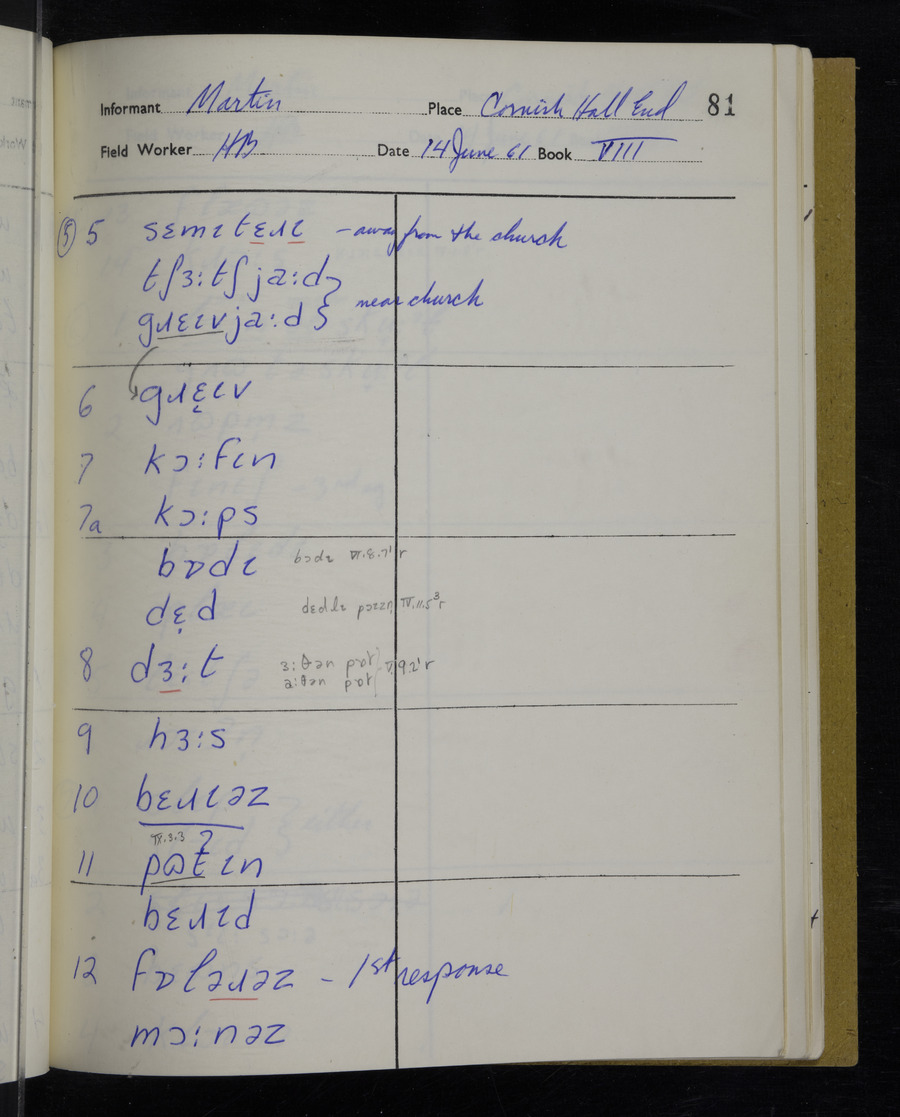 Informant Martin Place Cornish Hall End 81
Field Worker HB Date 14 June 61 Book VIII
⑤ 5 sɛmɪtɛɹɪ – away from the church
tʃɜ:tʃja:d
near church
gɹɛɪvja:d
6 gɹɛ̞ɪv
7 kɔ:fɪn
7a kɔ:ps
bɒdɪ bɔdɪ VI.8.7' r
dɛ̞d
8 dɜ:t
ɜ:θən pɒt
a:θən pɒt
9 hɜ:s
10 bɛɹɪəz
IX.3.3
11
bɛɹɪd
12 fɒləɹəz – 1st response
mɔ:nəz